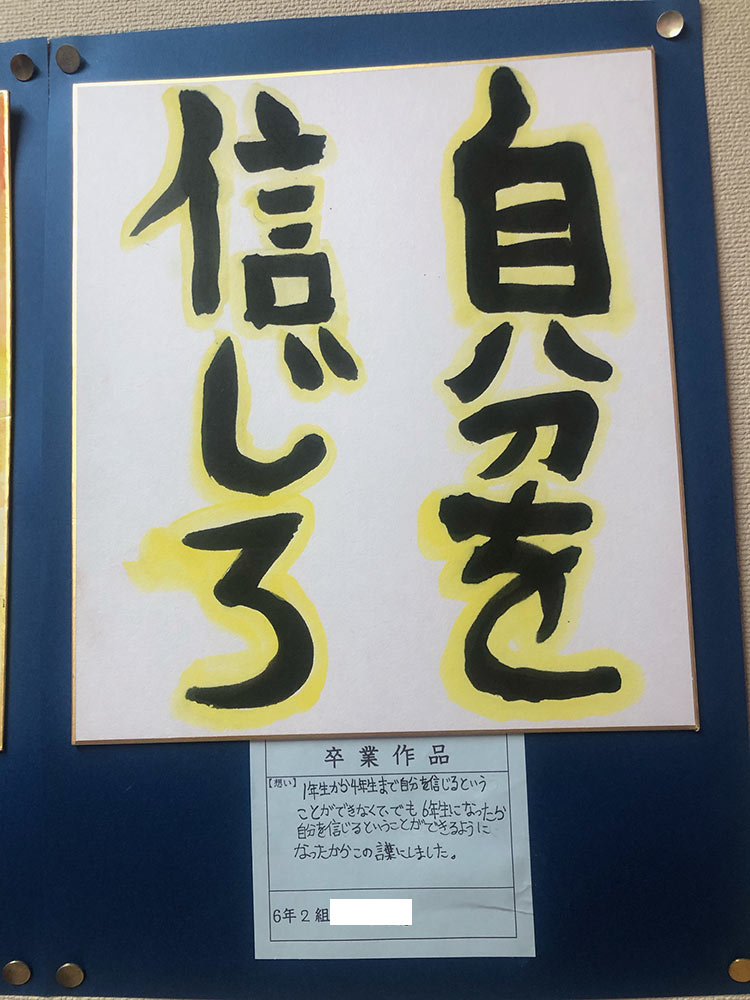 自分を
信じろ
卒業作品
【想い】
1年生から4年生まで自分を信じるという
ことができなくて、でも6年生になったから
自分を信じるということができるように
なったからこの言葉にしました。
6年2組